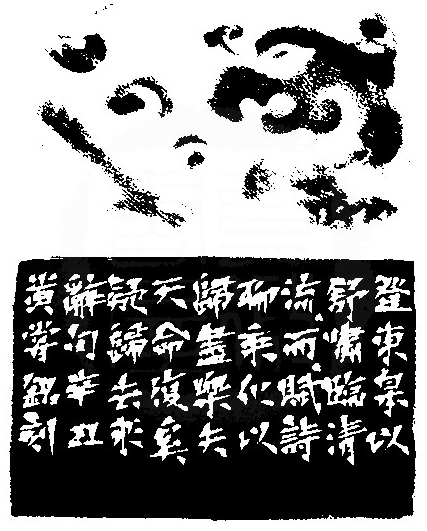 登東皋以
舒嘯臨清
流而賦詩
聊乘化以
歸盡樂夫
天命復奚
疑歸去來
辭句辛丑
黃銘刻